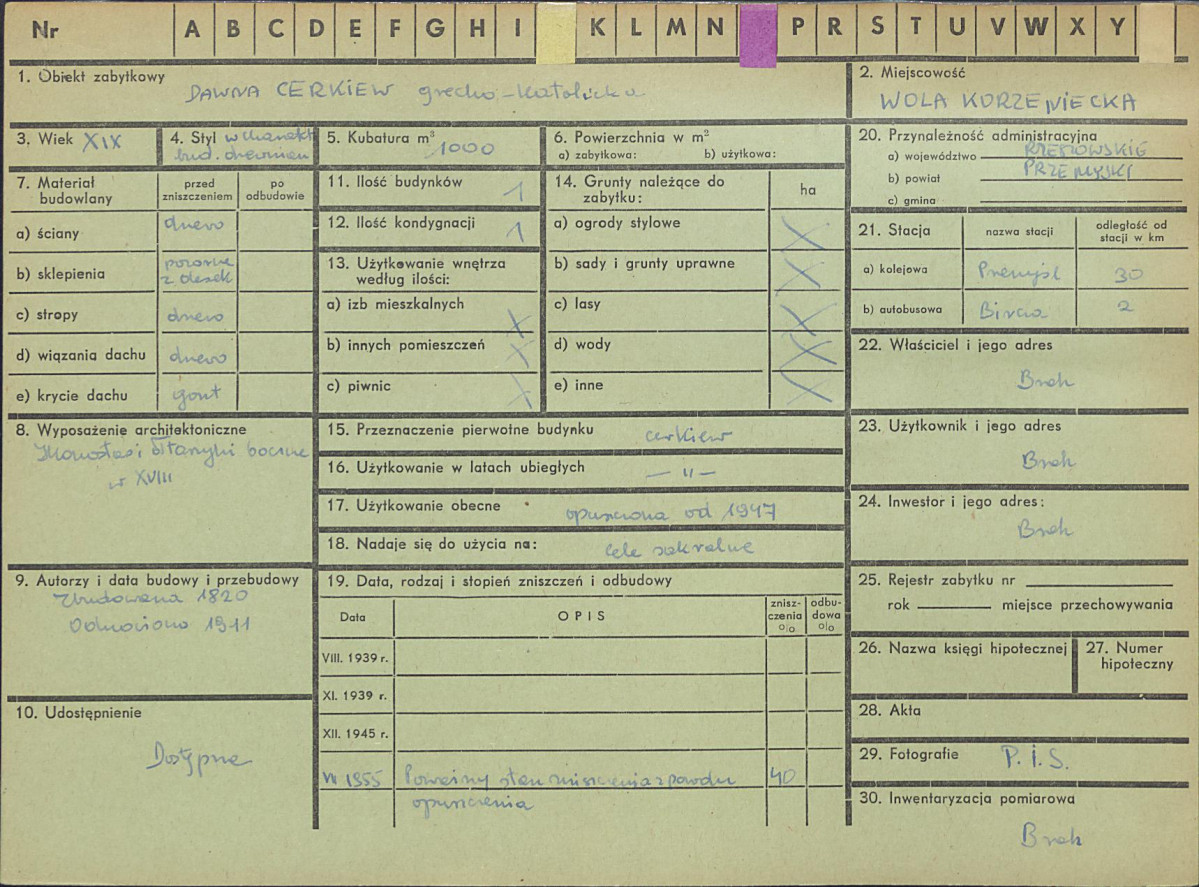 Nr A B C D E F G H I K L M N P R S T U V W X Y
1. Obiekt zabytkowy
DAWNA CERKIEW grecko-katolicka
2. Miejscowość
WOLA KORZENIECKA
3. Wiek XIX
4. Styl w charakt
bud. drewnian
5. Kubatura m³ 1000
6. Powierzchnia w m²
a) zabytkowa: b) użytkowa:
20. Przynależność administracyjna
a) województwo RZESZOWSKIE
b) powiat PRZEMYSKI
c) gmina
7. Materiał budowlany
przed zniszczeniem
po odbudowie
a) ściany drewo
b) sklepienia pozorne
z desek
c) stropy drewo
d) wiązania dachu drewo
e) krycie dachu gont
11. Ilość budynków 1
12. Ilość kondygnacji 1
13. Użytkowanie wnętrza
według ilości:
a) izb mieszkalnych X
b) innych pomieszczeń X
c) piwnic X
14. Grunty należące do
zabytku:
ha
a) ogrody stylowe X
b) sady i grunty uprawne X
c) lasy X
d) wody X
e) inne X
21. Stacja
nazwa stacji
odległość od
stacji w km
a) kolejowa Przemyśl 30
b) autobusowa Bircza 2
22. Właściciel i jego adres
Brak
8. Wyposażenie architektoniczne
Ikonostas i ołtarzyki boczne
w XVIII
15. Przeznaczenie pierwotne budynku cerkiew
16. Użytkowanie w latach ubiegłych — „ —
17. Użytkowanie obecne opuszczona od 1947
18. Nadaje się do użycia na: cele sakralne
23. Użytkownik i jego adres
Brak
24. Inwestor i jego adres:
Brak
9. Autorzy i data budowy i przebudowy
Zbudowana 1820
Odnowiono 1911
19. Data, rodzaj i stopień zniszczeń i odbudowy
Data
OPIS
znisz-
czenia
o/o
odbu-
dowa
o/o
VIII. 1939 r.
XI. 1939 r.
XII. 1945 r.
1955 Poważny stan zniszczenia z powodu 40
opuszczenia
25. Rejestr zabytku nr
rok miejsce przechowywania
26. Nazwa księgi hipotecznej
27. Numer
hipoteczny
10. Udostępnienie
Dostępna
28. Akta
29. Fotografie P.I.S.
30. Inwentaryzacja pomiarowa
Brak